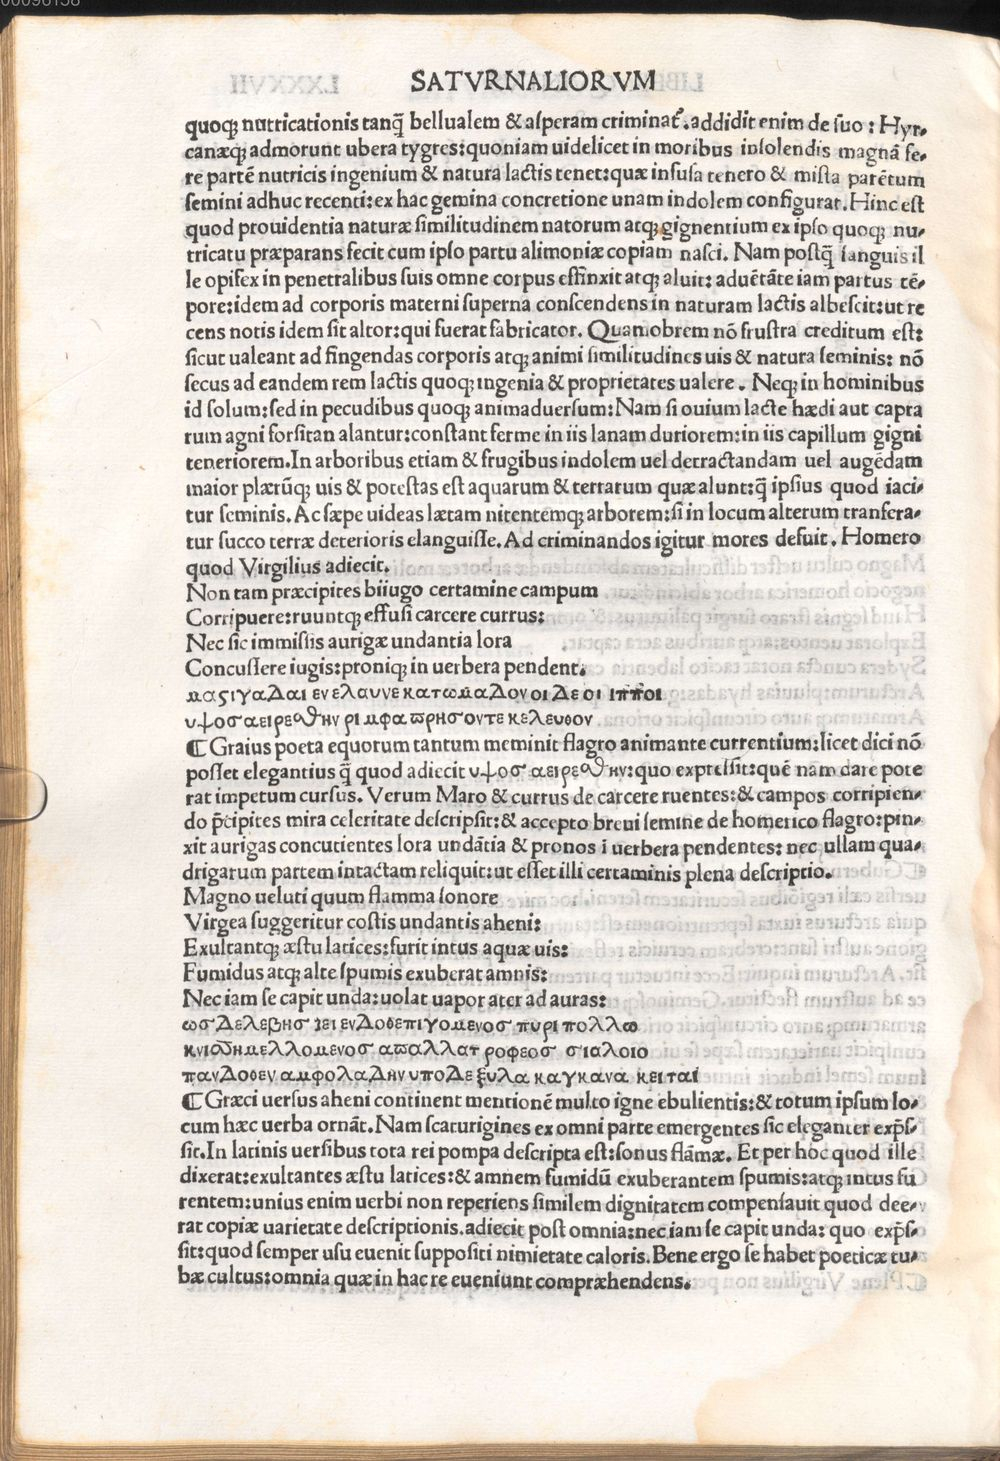 SATVRNALIORVM
quoq; nutricationis tanq̃ bellualem & asperam criminat᷑.addidit enim de suo : Hyr-
canæq; admorunt ubera tygres:quoniam uidelicet in moribus insolendis magnã fe-
re partẽ nutricis ingenium & natura lactis tenet:quæ infusa tenero & mista parẽtum
semini adhuc recenti:ex hac gemina concretione unam indolem configurat.Hinc est
quod prouidentia naturæ similitudinem natorum atq; gignentium ex ipso quoq; nu-
tricatu præparans fecit cum ipso partu alimoniæ copiam nasci. Nam postq̃ sanguis il
le opifex in penetralibus suis omne corpus effinxit atq; aluit: aduẽtãte iam partus tẽ-
pore:idem ad corporis materni superna conscendens in naturam lactis albescit:ut re
cens notis idem sit altor:qui fuerat fabricator. Quamobrem nõ frustra creditum est:
sicut ualeant ad fingendas corporis atq; animi similitudines uis & natura seminis: nõ
secus ad eandem rem lactis quoq; ingenia & proprietates ualere . Neq; in hominibus
id solum:sed in pecudibus quoq; animaduersum:Nam si ouium lacte hædi aut capra
rum agni forsitan alantur:constant ferme in iis lanam duriorem:in iis capillum gigni
teneriorem.In arboribus etiam & frugibus indolem uel detractandam uel augẽdam
maior plærũq; uis & potestas est aquarum & terrarum quæ alunt:q̃ ipsius quod iaci-
tur seminis.Ac sæpe uideas lætam nitentemq; arborem:si in locum alterum transfera-
tur succo terræ deterioris elanguisse.Ad criminandos igitur mores defuit. Homero
quod Virgilius adiecit.
Non tam præcipites biiugo certamine campum
Corripuere:ruuntq; effusi carcere currus:
Nec sic immissis aurigæ undantia lora
Concussere iugis:proniq; in uerbera pendent.
μαςιγαΔαι εν ελαυνε κατωμαΔον οι Δε οι ιπποι
υψοσ αειρεσθην ρι μφα πρησοντε κελευθον
¶Graius poeta equorum tantum meminit flagro animante currentium:licet dici nõ
posset elegantius q̃ quod adiecit υψοσ αειρεσθην:quo expressit:quẽ nam dare pote
rat impetum cursus. Verum Maro & currus de carcere ruentes:& campos corripien-
do p̃cipites mira celeritate descripsit:& accepto breui semine de homerico flagro:pin-
xit aurigas concutientes lora undãtia & pronos ĩ uerbera pendentes: nec ullam qua-
drigarum partem intactam reliquit:ut esset illi certaminis plena descriptio.
Magno ueluti quum flamma sonore
Virgea suggeritur costis undantis aheni:
Exultantq; æstu latices:furit intus aquæ uis:
Fumidus atq; alte spumis exuberat amnis:
Nec iam se capit unda:uolat uapor ater ad auras:
ωσ Δε λεβησ ζει ενΔοθεπιγομενοσ πυρι πολλω
κνισσημελλομενοσ απαλλατ ροφεοσ σιαλοιο
πανΔοθεν αμφολαΔην υπο Δε ξυλα καγκανα κειται
¶Græci uersus aheni continent mentionẽ multo igne ebulientis:& totum ipsum lo-
cum hæc uerba ornãt.Nam scaturigines ex omni parte emergentes sic eleganter exp̃s-
sit.In latinis uersibus tota rei pompa descripta est:sonus flãmæ. Et per hoc quod ille
dixerat:exultantes æstu latices:& amnem fumidũ exuberantem spumis:atq; intus fu
rentem:unius enim uerbi non reperiens similem dignitatem compensauit quod dee-
rat copiæ uarietate descriptionis.adiecit post omnia:nec iam se capit unda: quo exp̃s-
sit:quod semper usu euenit suppositi nimietate caloris.Bene ergo se habet poeticæ tu-
bæ cultus:omnia quæ in hac re eueniunt compræhendens.